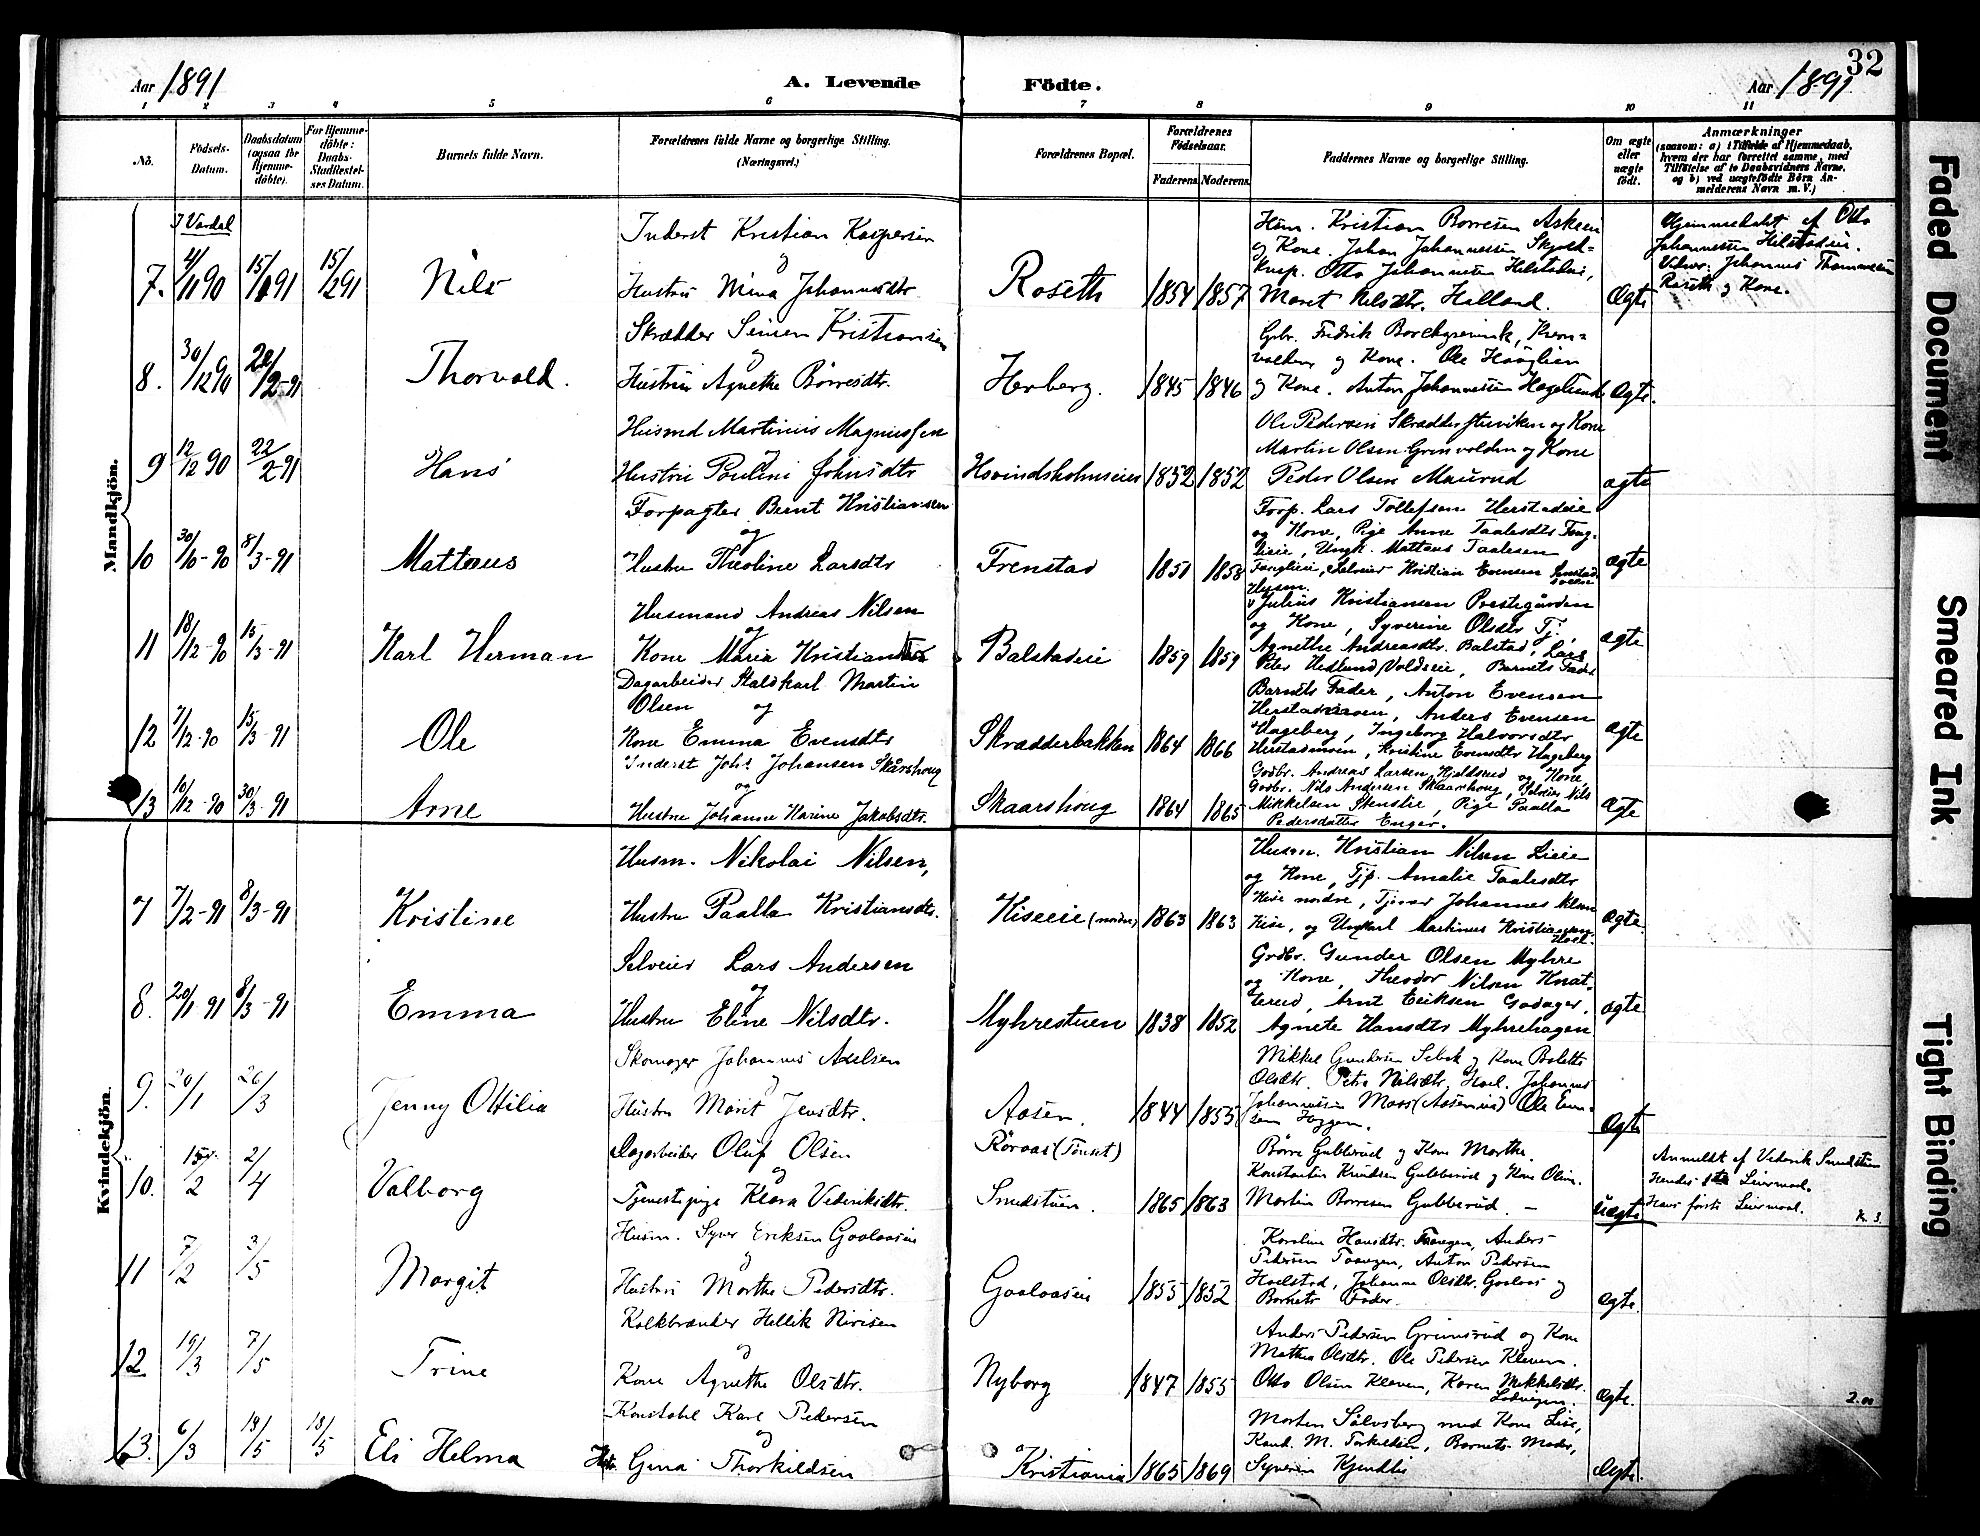 32
Aar 1891
A. Levende Födte.
Aar 1891
1 2 3 4 5 6 7 8 9 10 11
No.
Födsels-Datum.
Daabsdatum (ogsaa for Hjemme-döbte).
For Hjemme-döbte: Daabs-Stadfæstel-ses Datum.
Barnets fulde Navn.
Forældrenes fulde Navne og borgerlige Stilling.
(Næringsvei.)
Forældrenes Bopæl.
Forældrenes Födselsaar.
Faderens. Moderens.
Faddernes Navne og borgerlige Stilling.
Om ægte eller uægte födt.
Anmærkninger
(saasom: a) i Tilfælde af Hjemmedaab,
hvem der har forrettet samme, med
Tilföielse af to Daabsvidners Navne,
og b) ved uægtefödte Börn An-
melderens Navn m. V.)
Mandkjön.
I Vardal
7. 4/11 90 15/1 91 15/2 91 Nils
Inderst Kristian Kaspersen
og
Hustru Mina Johannesdtr
Roseth 1854 1857
Husm. Kristian Borresen Askeiu
og Kone. Johan Johannessen Skjold-
knap. Otto Johannessen Helstadeie,
Maret Nilsdtr. Helland.
Ægte
Hjemmedøbt af Otto
Johannessen Helstadeie.
Vidner. Johannes Thommesen
Roseth og Kone.
8. 30/12 90 2-91 Thorvald.
Skrædder Simen Kristiansen
og
Hustru Agnethe Børresdtr.
Herberg. 1845 1846
Gbr. Fredrik
og Kone. Ole Haaglien
og Kone. Anton Johannessen Hagelund
Ægte.
9 12/12 90 22/2-91 Hans
Husmd Martinus Magnussen
og
Hustru Pouline Johnsdtr
Hovindsholmseie 1852 1852
Ole Pedersen Skrædderstuviken og Kone
Martin Olsen Grinvolden og Kone
Peder Olsen Maurud
ægte
10 30/10-90 8/3-91 Mattæus
Forpagter Bernt Kristiansen
og
Hustru Theoline Larsdtr
Frenstad 1851 1858
Forp. Lars Tollefsen Herstadeie
og Kone, Pige Anne Taalesdtr Fang-
lieie, Ungk. Mattæus Taalesen
Fanglieie, Selveier Kristian Evensen
ægte
11 18/12-90 15/3-91 Karl Herman
Husmand Andreas Nilsen
og
Kone Maria Kristiansdtr
Balstadeie 1859 1859
Husm.
Julius Kristiansen Prestegården
og Kone, Syverine Olsdtr Tj.
Agnethe Andreasdtr. Balstad, Lars
Peter Hedlund Voldseie, Barnets Fader
ægte
12 7/12-90 15/3-91 Ole
Dagarbeider Staldkarl Martin
Olsen og
Kone Emma Evensdtr
Skrædderbakken 1864 1866
Barnets Fader, Anton Evensen
Herstadsveen, Anders Evensen
Hageberg, Ingeborg Halvorsdtr
Herstadmoen, Kristine Evensdtr Hageberg
ægte
13 10/12-90 30/3-91 Arne
Inderst Johs Johansen Skårshoug
og
Hustru Johanne Karine Jakobsdtr.
Skaarshoug 1864 1865
Gødbr. Andreas Larsen Hjeldsrud og Kone,
Gødbr. Nils Andersen Skaarshoug, Selveier Nils
Mikkelsen Stenslie, Pige Paalla
Pedersdatter Enger.
ægte
Kvindekjön.
7 7/2-91 8/3-91 Kristine
Husm. Nikolai Nilsen,
Hustru Paalla Kristiansdtr.
Kiseeie (nordre) 1863 1863
Husm. Kristian Nilsen Lieie
og Kone, Tjp. Amalie Taalesdtr
Kise nordre, Tjener Johannes Nilsen
Kise, og Ungkarl Martinus Kristiansen
Hoel.
ægte
8. 20/1-91 8/3-91 Emma
Selveier Lars Andersen
og
Hustru Eline Nilsdtr.
Myhrestuen 1838 1852
Grdbr. Gunder Olsen Myhre
og Kone, Theodor Nilsen Knat-
terud, Arnt Eriksen Godager,
Agnete Hansdtr Myhrehagen
ægte
9. 20/1 26/3 Jenny Ottilia
Skomager Johannes Axelsen
og
Hustru Marit Jensdtr.
Aasen. 1844 1855
Mikkel Gundersen og Kone Bolette
Olsdtr. Petra Nilsdtr. Hoel. Johannes
Johannessen Moss (Aaseneie) Ole Even-
sen Hoggen.
Ægte
10. 15/2 2/4 Valborg
Dagarbeider Oluf Olsen
og
Tjenestepige Klara Vederiksdtr.
Röraas (Tönset)
Smedstuen. 1865 1863
Børre Gubberud og Kone Marthe.
Konstantin Knudsen Gubberud og Kone Oline.
Martin Borresen Gubberud. —
uægte
Anmeldt af Vederik Smedstuen
Hendes 1ste Leiermaal.
Hans første Leiermaal.
K. 3.
11 7/2 3/5 Margit
Husm. Syver Eriksen Gaalaaseie
Hustru Marthe Pedersdtr.
Gaalaaseie 1855 1852
Karoline Hansdtr. Faangen, Anders
Pedersen Faangen, Anton Pedersen
Hoelstad, Johanne Olsdtr. Gaalaas og
Barnets Fader.
Ægte.
12 19/3 7/5 Trine
Kalkbrænder Hellik Nirisen
og
Kone Agnethe Olsdtr.
Nyborg 1847 1855
Anders Pedersen Grimsrud og Kone
Mathea Olsdtr. Ole Pedersen Kleven.
Otto Olsen Kleven, Karen Mikkelsdtr.
Ægte.
2.00
13. 6/3 18/5 18/5 Eli Helma
Konstabel Karl Pedersen
og
Hstr. Gina Thorkildsen
Kristiania 1865 1869
Morten Sølvsberg med Kone Lise,
Kand. M. Torkildsen, Barnets Moder,
Syverin Kjendlie
Ægte.
Faded Document
Smeared Ink.
Tight Binding